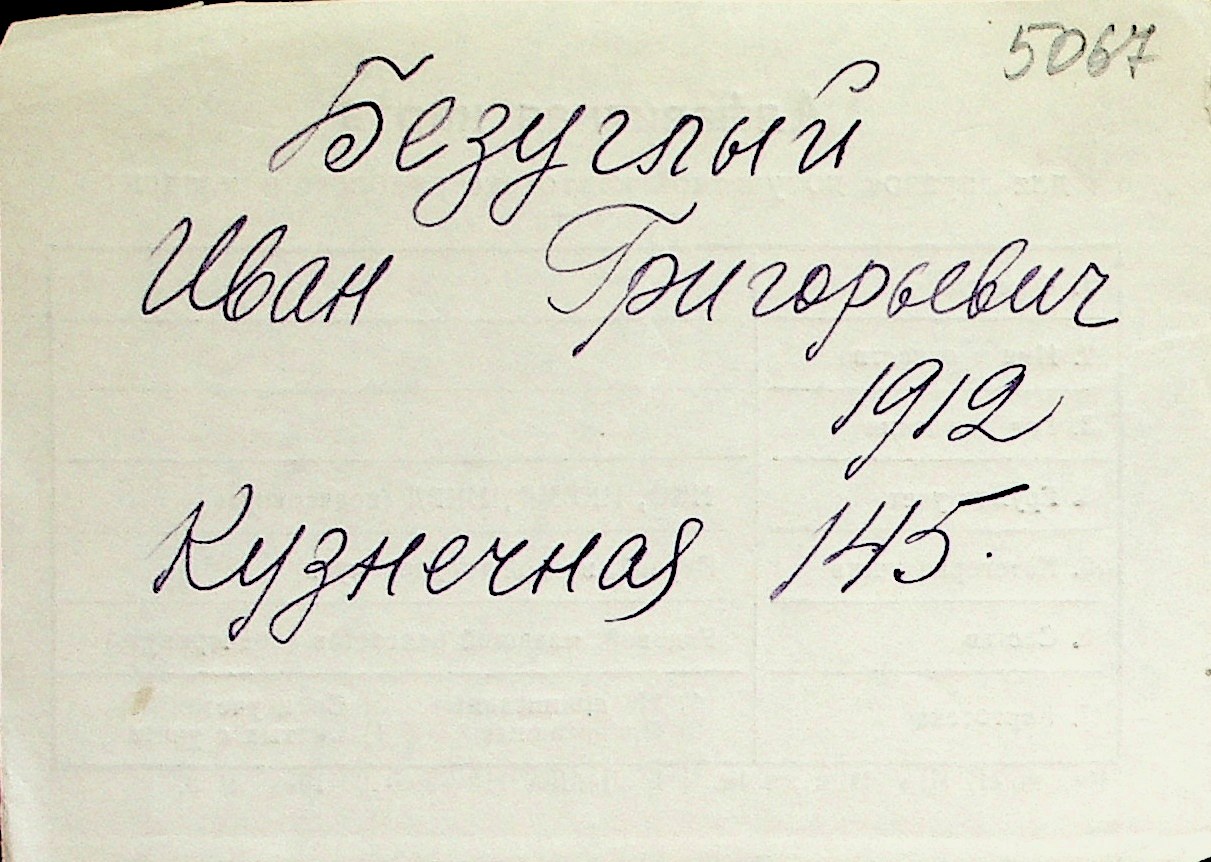 5067
Безуглый
Иван Григорьевич
1912
Кузнечная 145.